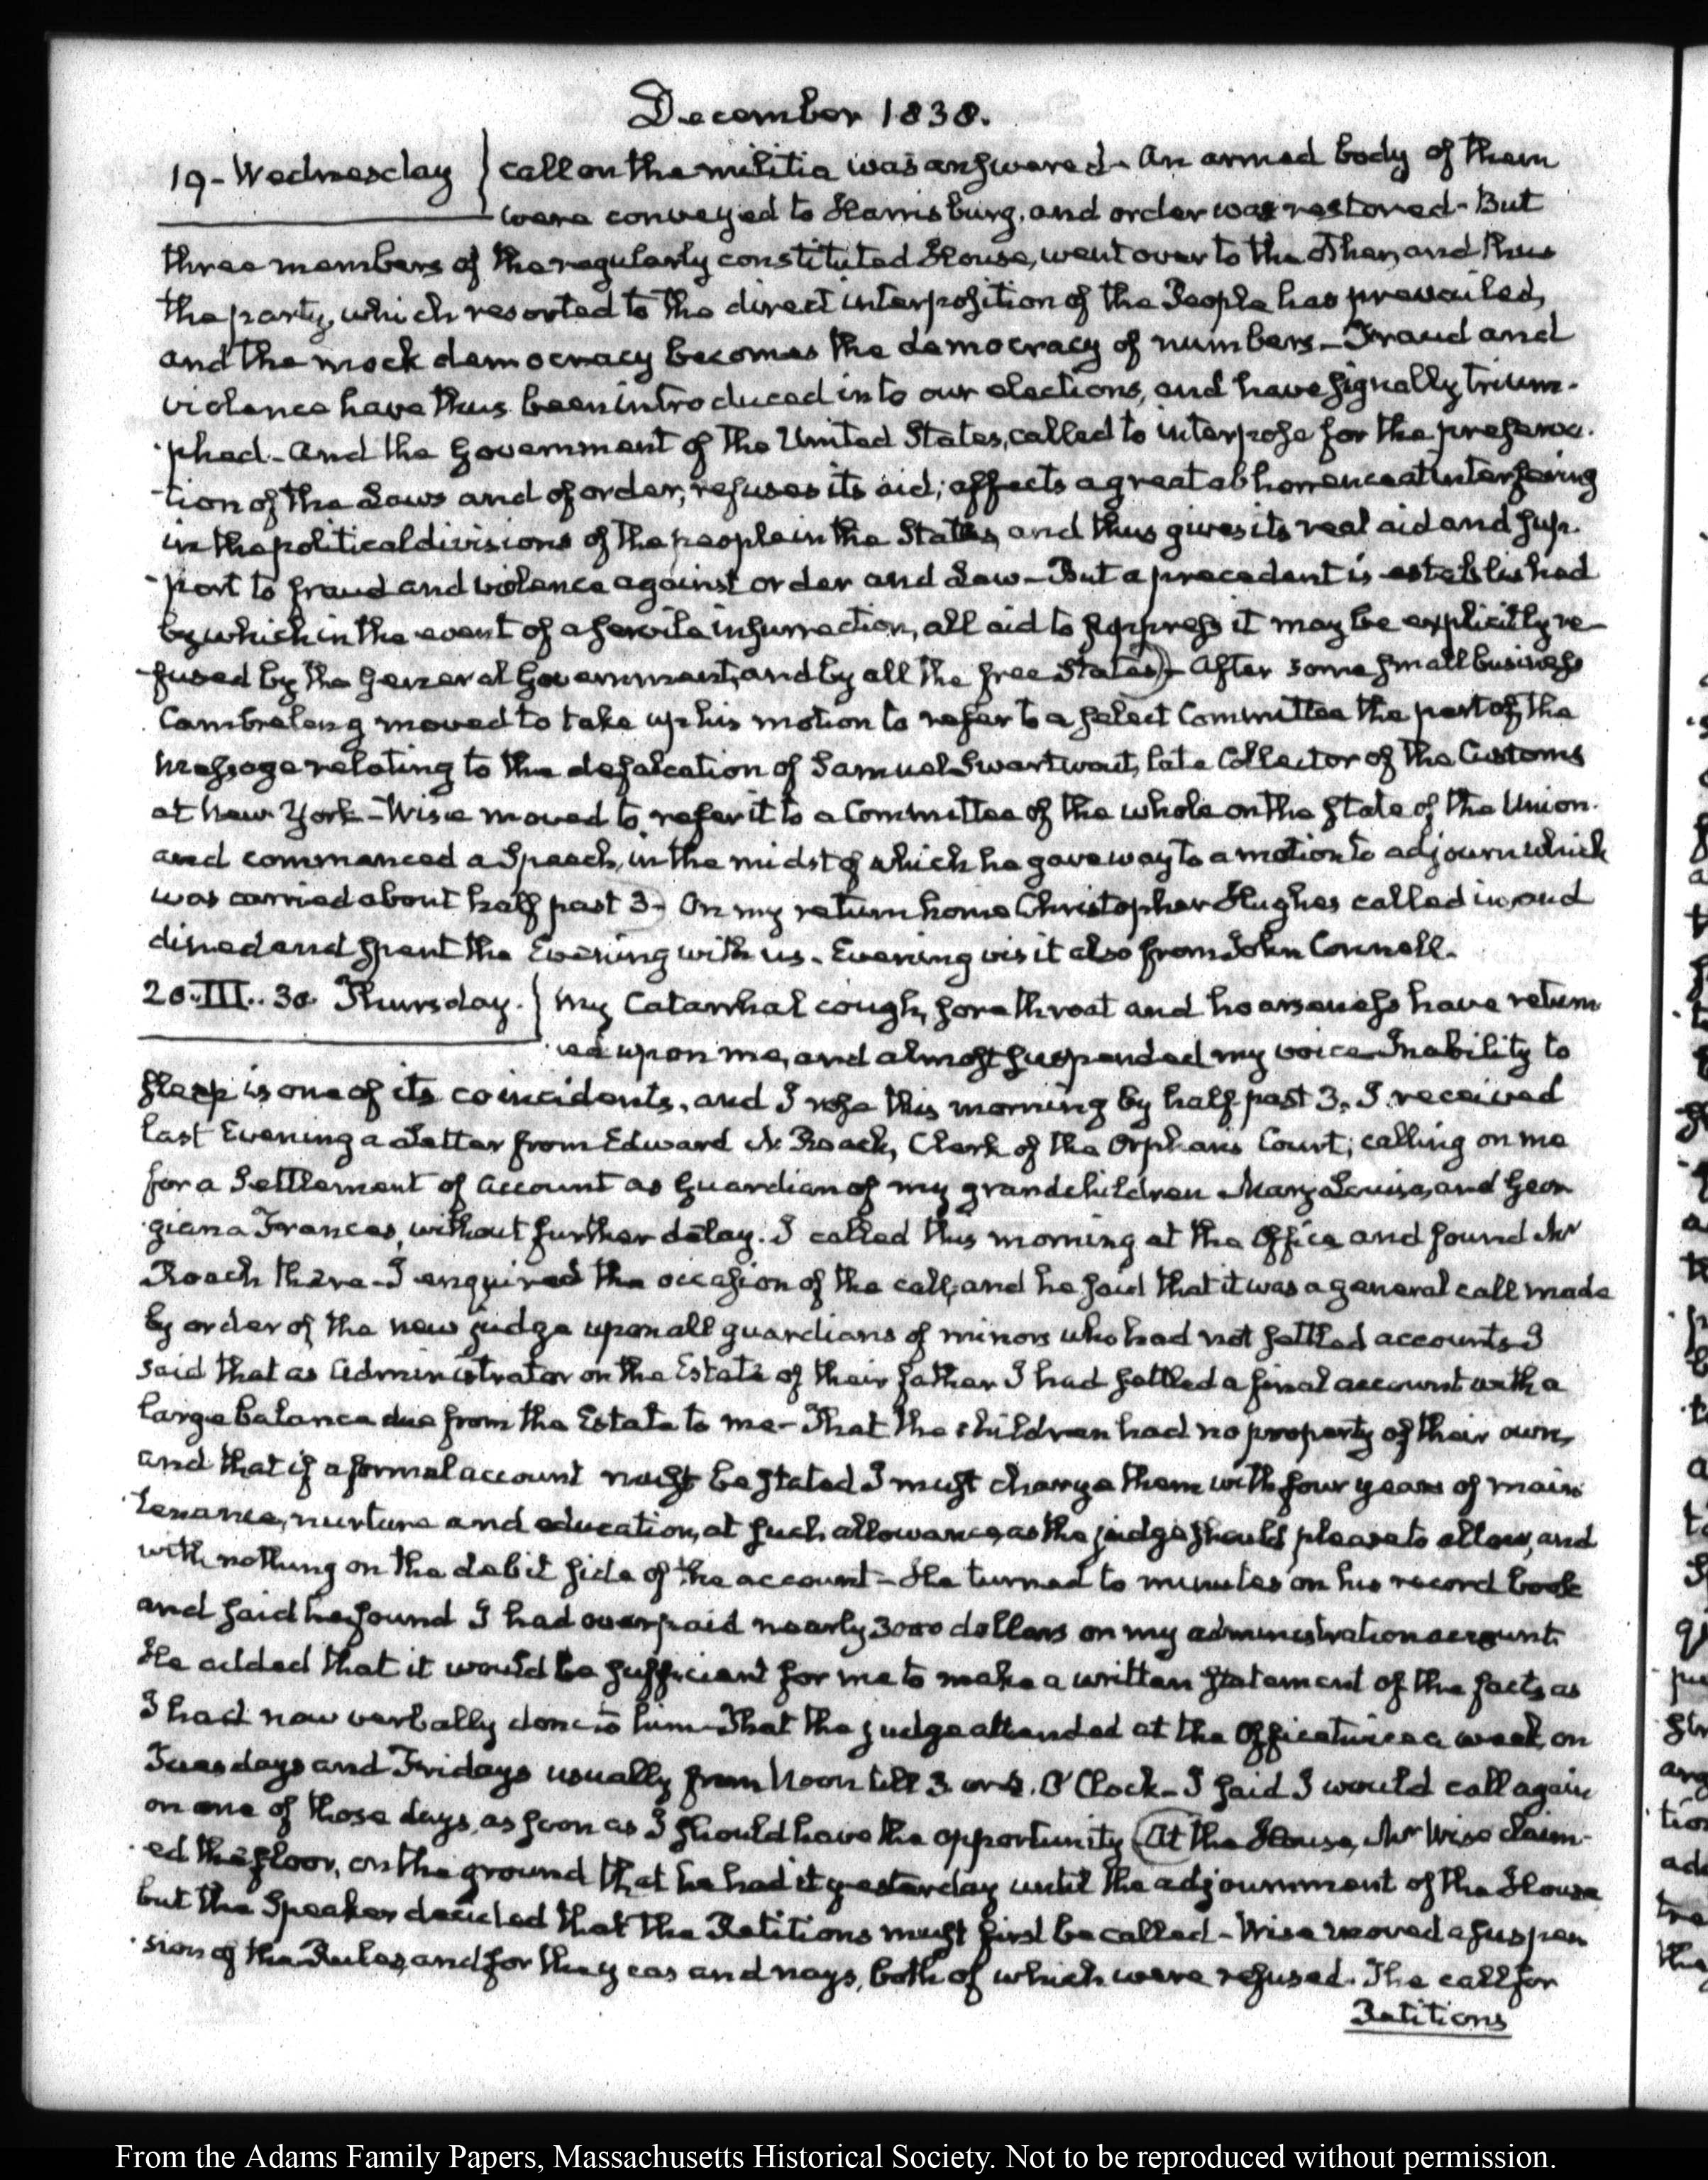 December 1838.
19 - Wednesday } call on the militia was answered - An armed body of them
were conveyed to Harrisburg, and order was restored - But
three members of the regularly constituted House, went over to the other, and thus
the party, which resorted to the direct interposition of the People has prevailed,
and the mock democracy becomes the democracy of numbers - Fraud and
violence have thus been introduced into our elections, and have signally trium-
-phed - And the Government of the United States, called to interpose for the preserva-
-tion of the Laws and of order, refuses its aid; affects a great abhorrence at interfering
in the political divisions of the people in the States, and thus gives its real aid and sup-
-port to fraud and violence against order and Law - But a precedent is established
by which in the event of a servile insurrection, all aid to suppress it may be explicitly re-
-fused by the General Government, and by all the free States) - After some small business
Cambreleng moved to take up his motion to refer to a select Committee the part of the
Message relating to the defalcation of Samuel Swartwout, late Collector of the Customs
at New-York - Wise moved to refer it to a Committee of the whole on the state of the Union.
and commenced a Speech, in the midst of which he gave way to a motion to adjourn which
was carried about half past 3 - On my return home Christopher Hughes called in, and
dined and spent the Evening with us - Evening visit also from John Connell.
20. III. 30. Thursday. } My Catarrhal cough, sore throat and hoarseness have return
-ed upon me, and almost suspended my voice - Inability to
sleep is one of its coincidents, and I rose this morning by half past 3. I received
last Evening a Letter from Edward N. Roach, Clerk of the Orphans Court; calling on me
for a Settlement of Account as Guardian of my grandchildren Mary Louisa, and Geor
-giana Frances, without further delay. I called this morning at the Office and found Mr
Roach there - I enquired the occasion of the call, and he said that it was a general call made
by order of the new judge upon all guardians of minors who had not settled accounts - I
said that as Administrator on the Estate of their father I had settled a final account with a
large balance due from the Estate to me - That the children had no property of their own,
and that if a formal account must be stated I must charge them with four years of main
-tenance, nurture and education, at such allowance, as the judge should please to allow, and
with nothing on the debit side of the account - He turned to minutes on his record book
and said he found I had overpaid nearly 3000 dollars on my administration account.
He added that it would be sufficient for me to make a written statement of the facts as
I had now verbally done to him - That the judge attended at the Office twice a week on
Tuesdays and Fridays usually from Noon till 3 or 4. O'Clock - I said I would call again
on one of those days, as soon as I should have the opportunity (At the House, Mr Wise claim-
-ed the floor, on the ground that he had it yesterday until the adjournment of the House
but the Speaker decided that the Petitions must first be called - Wise moved a suspen
-sion of the Rules, and for the yeas and nays, both of which were refused. The call for
Petitions
From the Adams Family Papers, Massachusetts Historical Society. Not to be reproduced without permission.